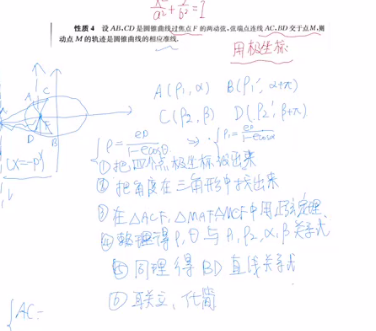 x²/a² + y²/b² = 1
性质 4 设 AB,CD 是圆锥曲线过焦点 F 的两动弦,弦端点连线 AC,BD 交于点 M,则
动点 M 的轨迹是圆锥曲线的相应准线.
用极坐标
A(ρ₁, α) B(ρ₁′, α+π)
C(ρ₂, β) D(ρ₂′, β+π)
A C
D B
(x=-p)
ρ = ep/(1-ecosθ) → ρ₁ = ep/(1-ecosα)
①把四个点极坐标设出来
②把角度在三角形中找出来
③在△ACF,△MAF,△MCF中用正弦定理
④整理得ρ,θ与ρ₁,ρ₂,α,β关系式
⑤同理得BD直线关系式
⑥联立、化简
{AC=